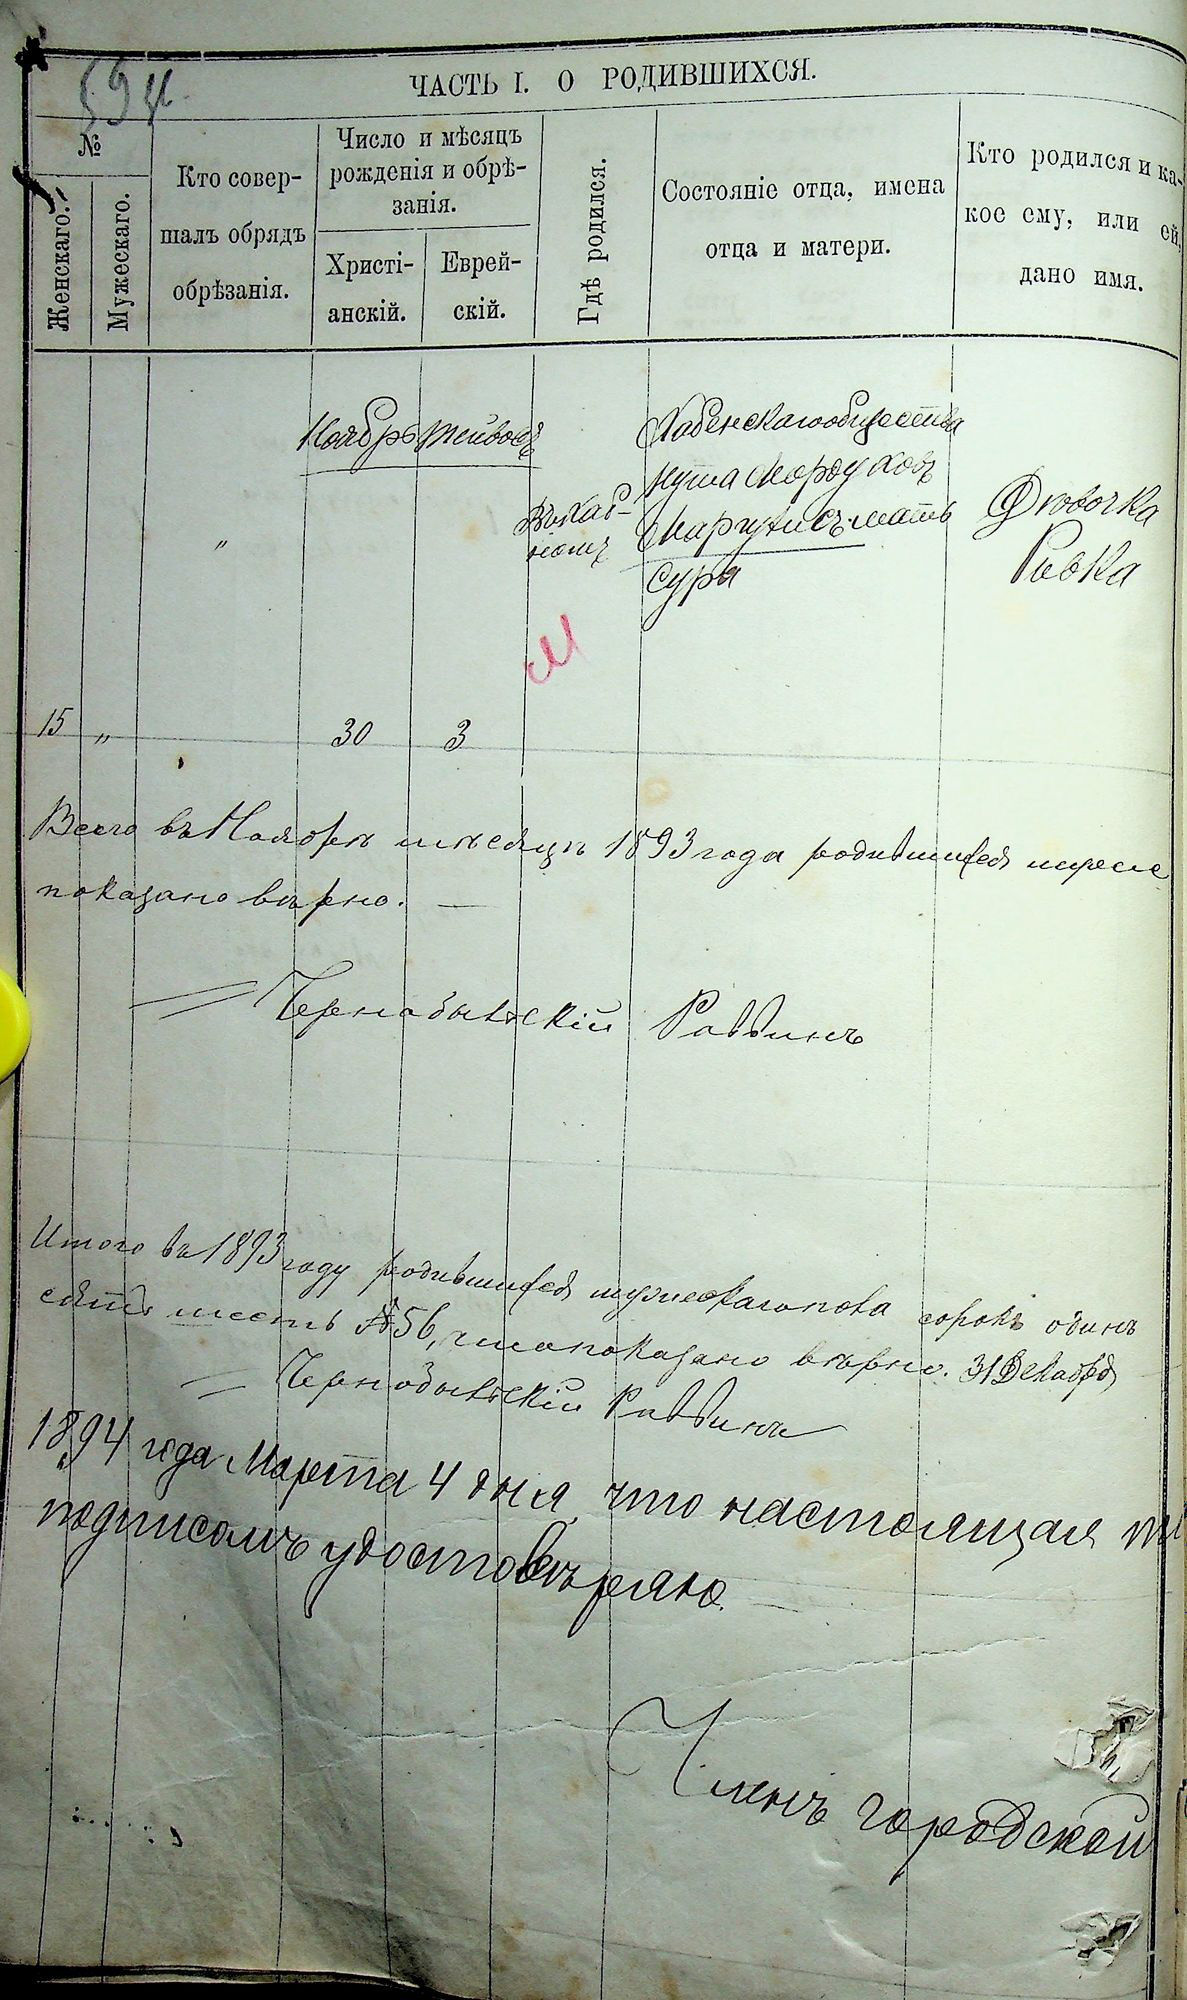 594.
ЧАСТЬ I. О РОДИВШИХСЯ.
№
Женскаго.
Мужескаго.
Кто совер-
шалъ обрядъ
обрѣзанія.
Число и мѣсяцъ
рожденія и обрѣ-
занія.
Христі-
анскій.
Еврей-
скій.
Гдѣ родился.
Состояніе отца, имена
отца и матери.
Кто родился и ка-
кое ему, или ей,
дано имя.
Ноябрь Тейвоѳъ
Хабенскаго общества
Нута Мордуховъ
Маргулисъ мать
Сура
Въ Хаб-
номъ
"
Дѣвочка
Ривка
М
15 " 30 3
Всего въ Ноябрѣ мѣсяцѣ 1893 года родившихся
показано вѣрно. —
Чернобыльскій Раввинъ
Итого въ 1893 году родившихся мужескаго пола сорокъ одинъ
сятъ шесть № 56, что показано вѣрно. 31 Декабря
Чернобыльскій Раввинъ
1894 года Марта 4 дня что настоящая
подписомъ удостовѣряю.
Членъ городской